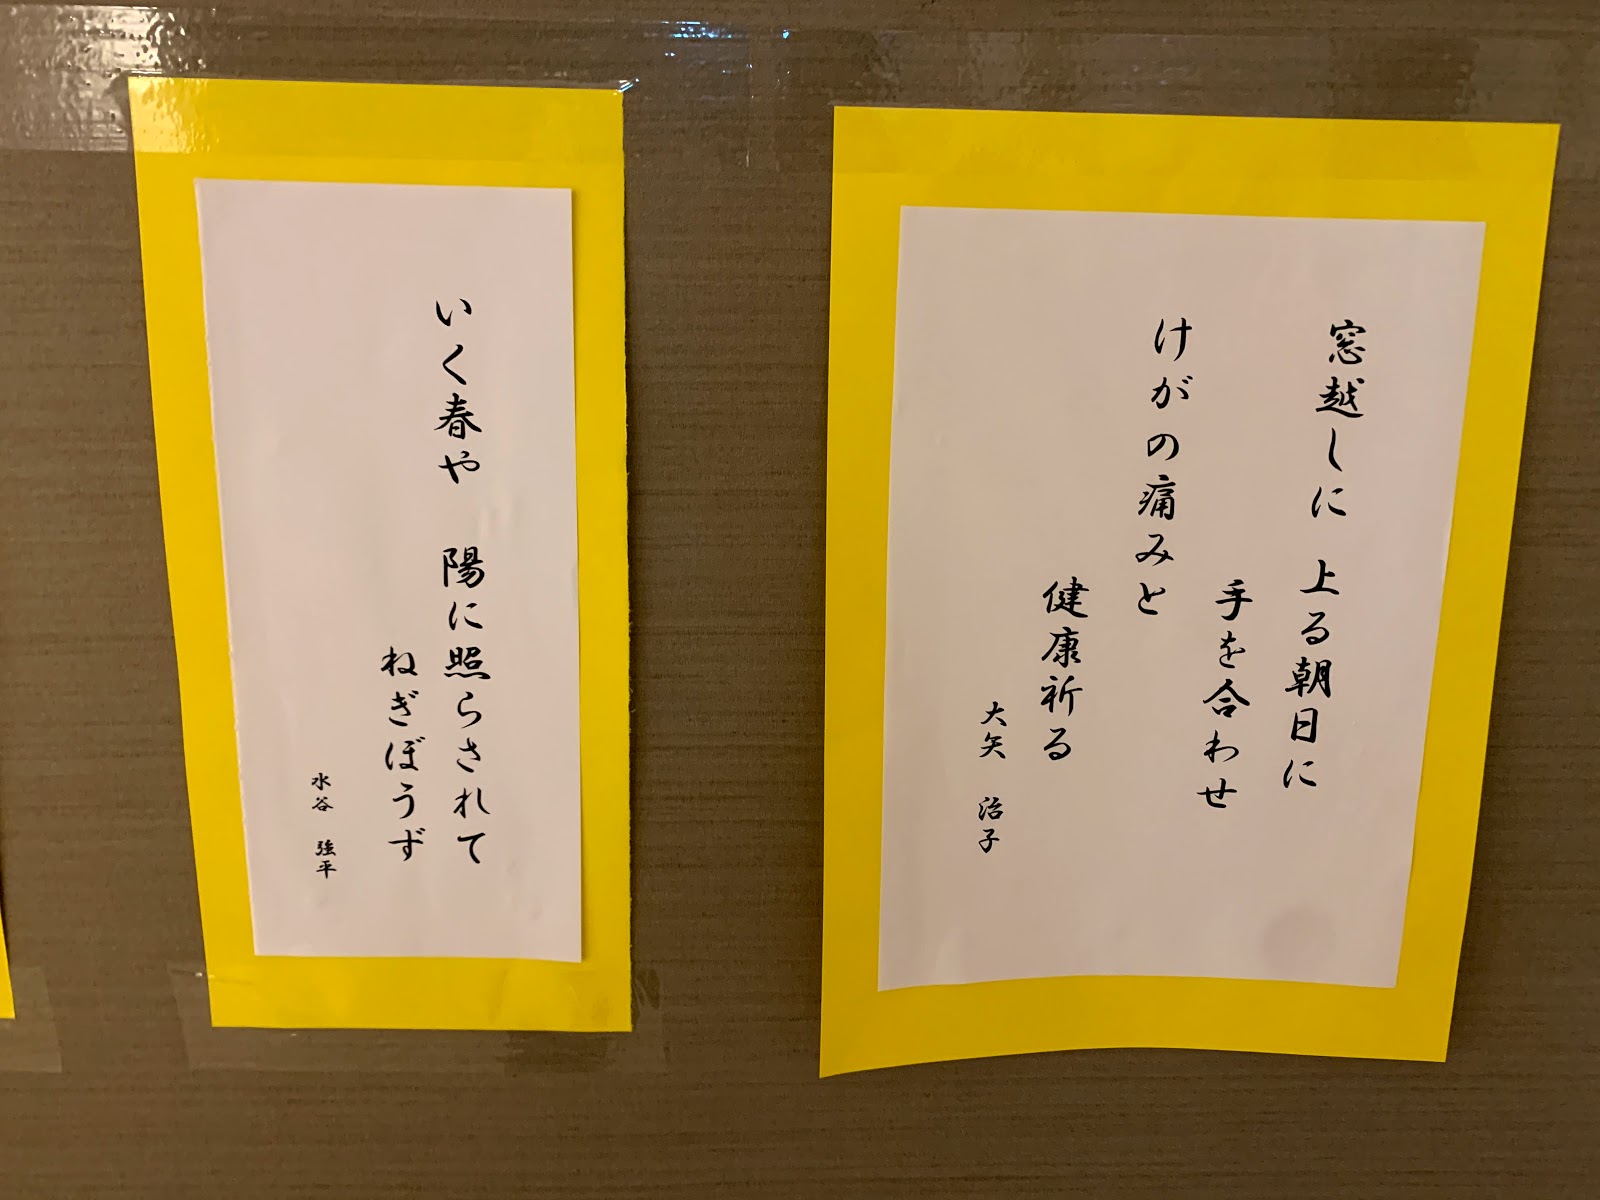 窓越しに 上る朝日に
手を合わせ
けがの痛みと
健康祈る
大矢 治子
いく春や 陽に照らされて
ねぎぼうず
水谷 強平